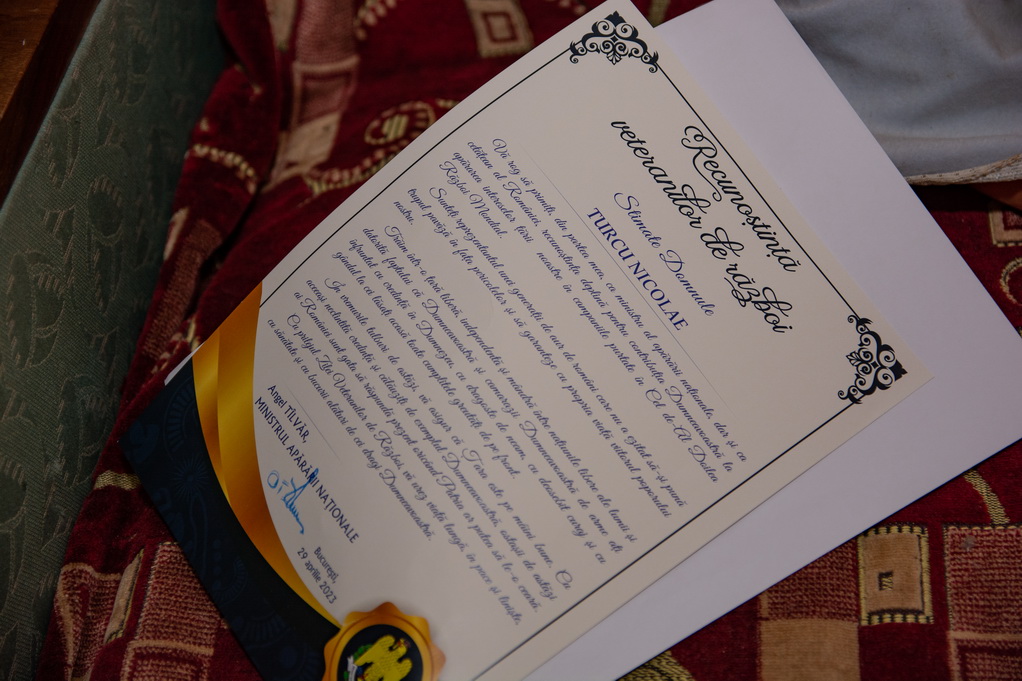 Recunoștință
veteranilor de război
Stimate Domnule
TURCU NICOLAE
Vă rog să primiți, din partea mea, ca ministru al apărării naționale, dar și ca
cetățean al României, recunoștința deplină pentru contribuția Dumneavoastră la
apărarea intereselor țării noastre în campaniile purtate în Cel de-Al Doilea
Război Mondial.
Sunteți reprezentantul unei generații de aur de români care nu a ezitat să-și pună
trupul pavăză în fața pericolelor și să garanteze cu propria viață viitorul poporului
nostru.
Trăim într-o țară liberă, independentă și mândră între națiunile libere ale lumii și
datorită faptului că Dumneavoastră și camarazii Dumneavoastră de arme ați
înfruntat cu credință în Dumnezeu, cu dragoste de neam, cu deosebit curaj și cu
gândul la cei lăsați acasă toate cumplitele greutăți de pe front.
În vremurile tulburi de astăzi, vă asigur că Țara este pe mâini bune. Cu
aceeași neclintită credință și călăuziți de exemplul Dumneavoastră, ostașii de astăzi
ai României sunt gata să răspundă prezent oricând Patria ar putea să le-o ceară.
Cu prilejul Zilei Veteranilor de Război, vă urez viață lungă, în pace și liniște,
cu sănătate și cu bucurii alături de cei dragi Dumneavoastră.
Angel TÎLVĂR,
MINISTRUL APĂRĂRII NAȚIONALE
București,
29 aprilie 2023